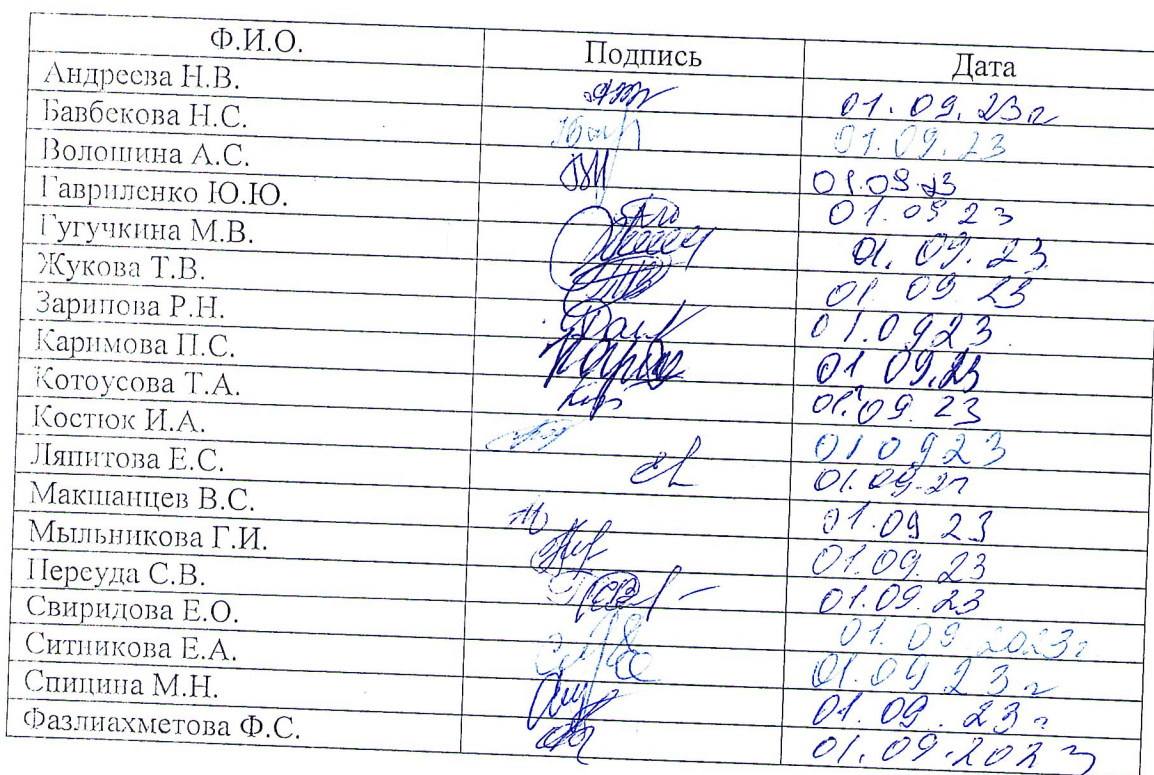 Ф.И.О. Подпись Дата
Андреева Н.В. 01.09.23г
Бавбекова Н.С. 01.09.23
Волошина А.С. 01.09.23
Гавриленко Ю.Ю. 01.09 23
Гугучкина М.В. 01.09.23
Жукова Т.В. 01 09 23
Зарипова Р.Н. 01.0923
Каримова П.С. 01 09.23
Котоусова Т.А. 01.09.23
Костюк И.А. 010923
Ляпитова Е.С. 01.09.23
Макшанцев В.С. 01.09 23
Мыльникова Г.И. 01.09.23
Переуда С.В. 01.09.23
Свиридова Е.О. 01.09 2023г
Ситникова Е.А. 01.09 23г
Спицина М.Н. 01.09.23г
Фазлиахметова Ф.С. 01.09.2023